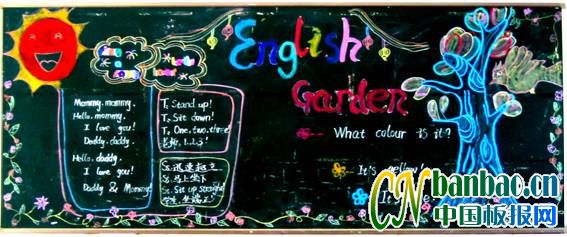 English
Garden
Mommy, mommy.
Hello, mommy.
I love you!
Daddy, daddy.
Hello, daddy.
I love you!
Daddy & Mommy
T, Stand up!
T, Sit down!
T, One, two, three!
1.2.3!
S:迅速起立
S:马上坐下
S: Sit up straight
What colour is it?
It's yellow!
It
CNbanbao.cn
中国板报网